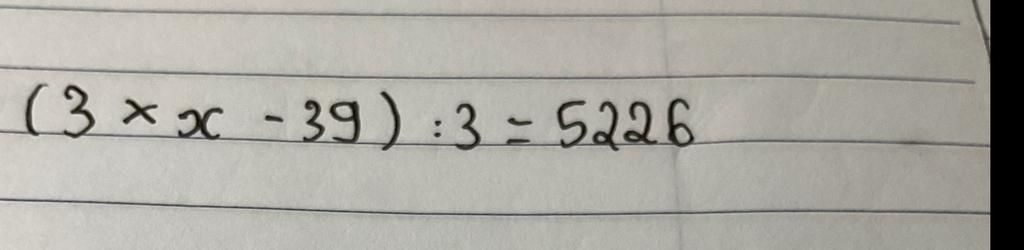 (3 × x - 39) : 3 = 5226